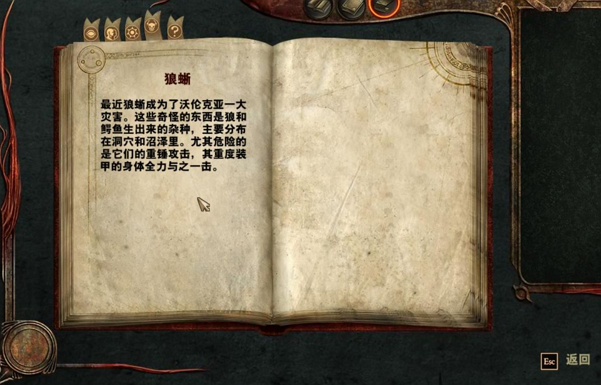 狼蜥
最近狼蜥成为了沃伦克亚一大
灾害。这些奇怪的东西是狼和
鳄鱼生出来的杂种，主要分布
在洞穴和沼泽里。尤其危险的
是它们的重锤攻击，其重度装
甲的身体全力与之一击。
?
Esc 返回